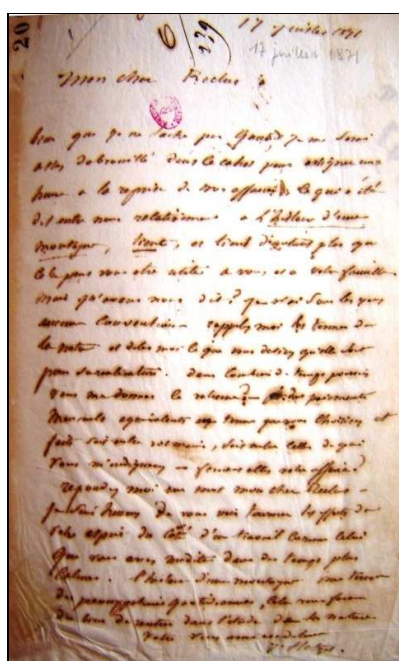 20
6
239
17 juillet 1871
17 juillet 1871
Mon cher Reclus
bien que je ne sache pas quand je me serai
assez débrouillé dans le cahos pour assigner une
heure à la reprise de nos affaires, ce qui a été
dit entre nous relativement à l'histoire d'une
montagne, tient, et tient d'autant plus que
cela peut vous être utile à vous et à votre famille
mais qu'avons nous dit? je n'ai sous les yeux
aucune convention. rappelez moi les termes de
la note et dites moi ce que vous désirez qu'elle soit
pour sa réalisation. dans combien de temps pourriez
vous me donner le volume? des paiements
mensuels équivalents
fait soit entre vos mains, soit entre celle de qui
vous m'indiquerez — feront elle votre affaire?
répondez moi un mot mon cher Reclus —
je suis heureux de vous voir tourner les efforts de
votre esprit du côté d'un travail comme celui
que vous avez médité dans des temps plus
calmes. l'histoire d'une montagne
de quotidiennes, cela vous fera
du bien de rentrer dans l'étude de la nature.
Votre
J. Hetzel.